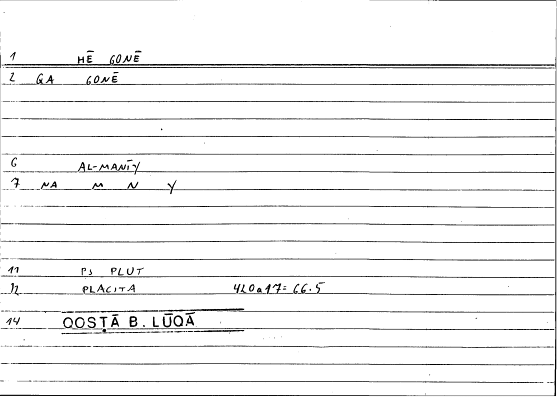 1 HĒ GONĒ
2 QA GONĒ
6 AL-MANĪY
7 MA M N Y
11 PS PLUT
12 PLACITA 420a17= 66.5
14 QOSṬĀ B. LŪQĀ